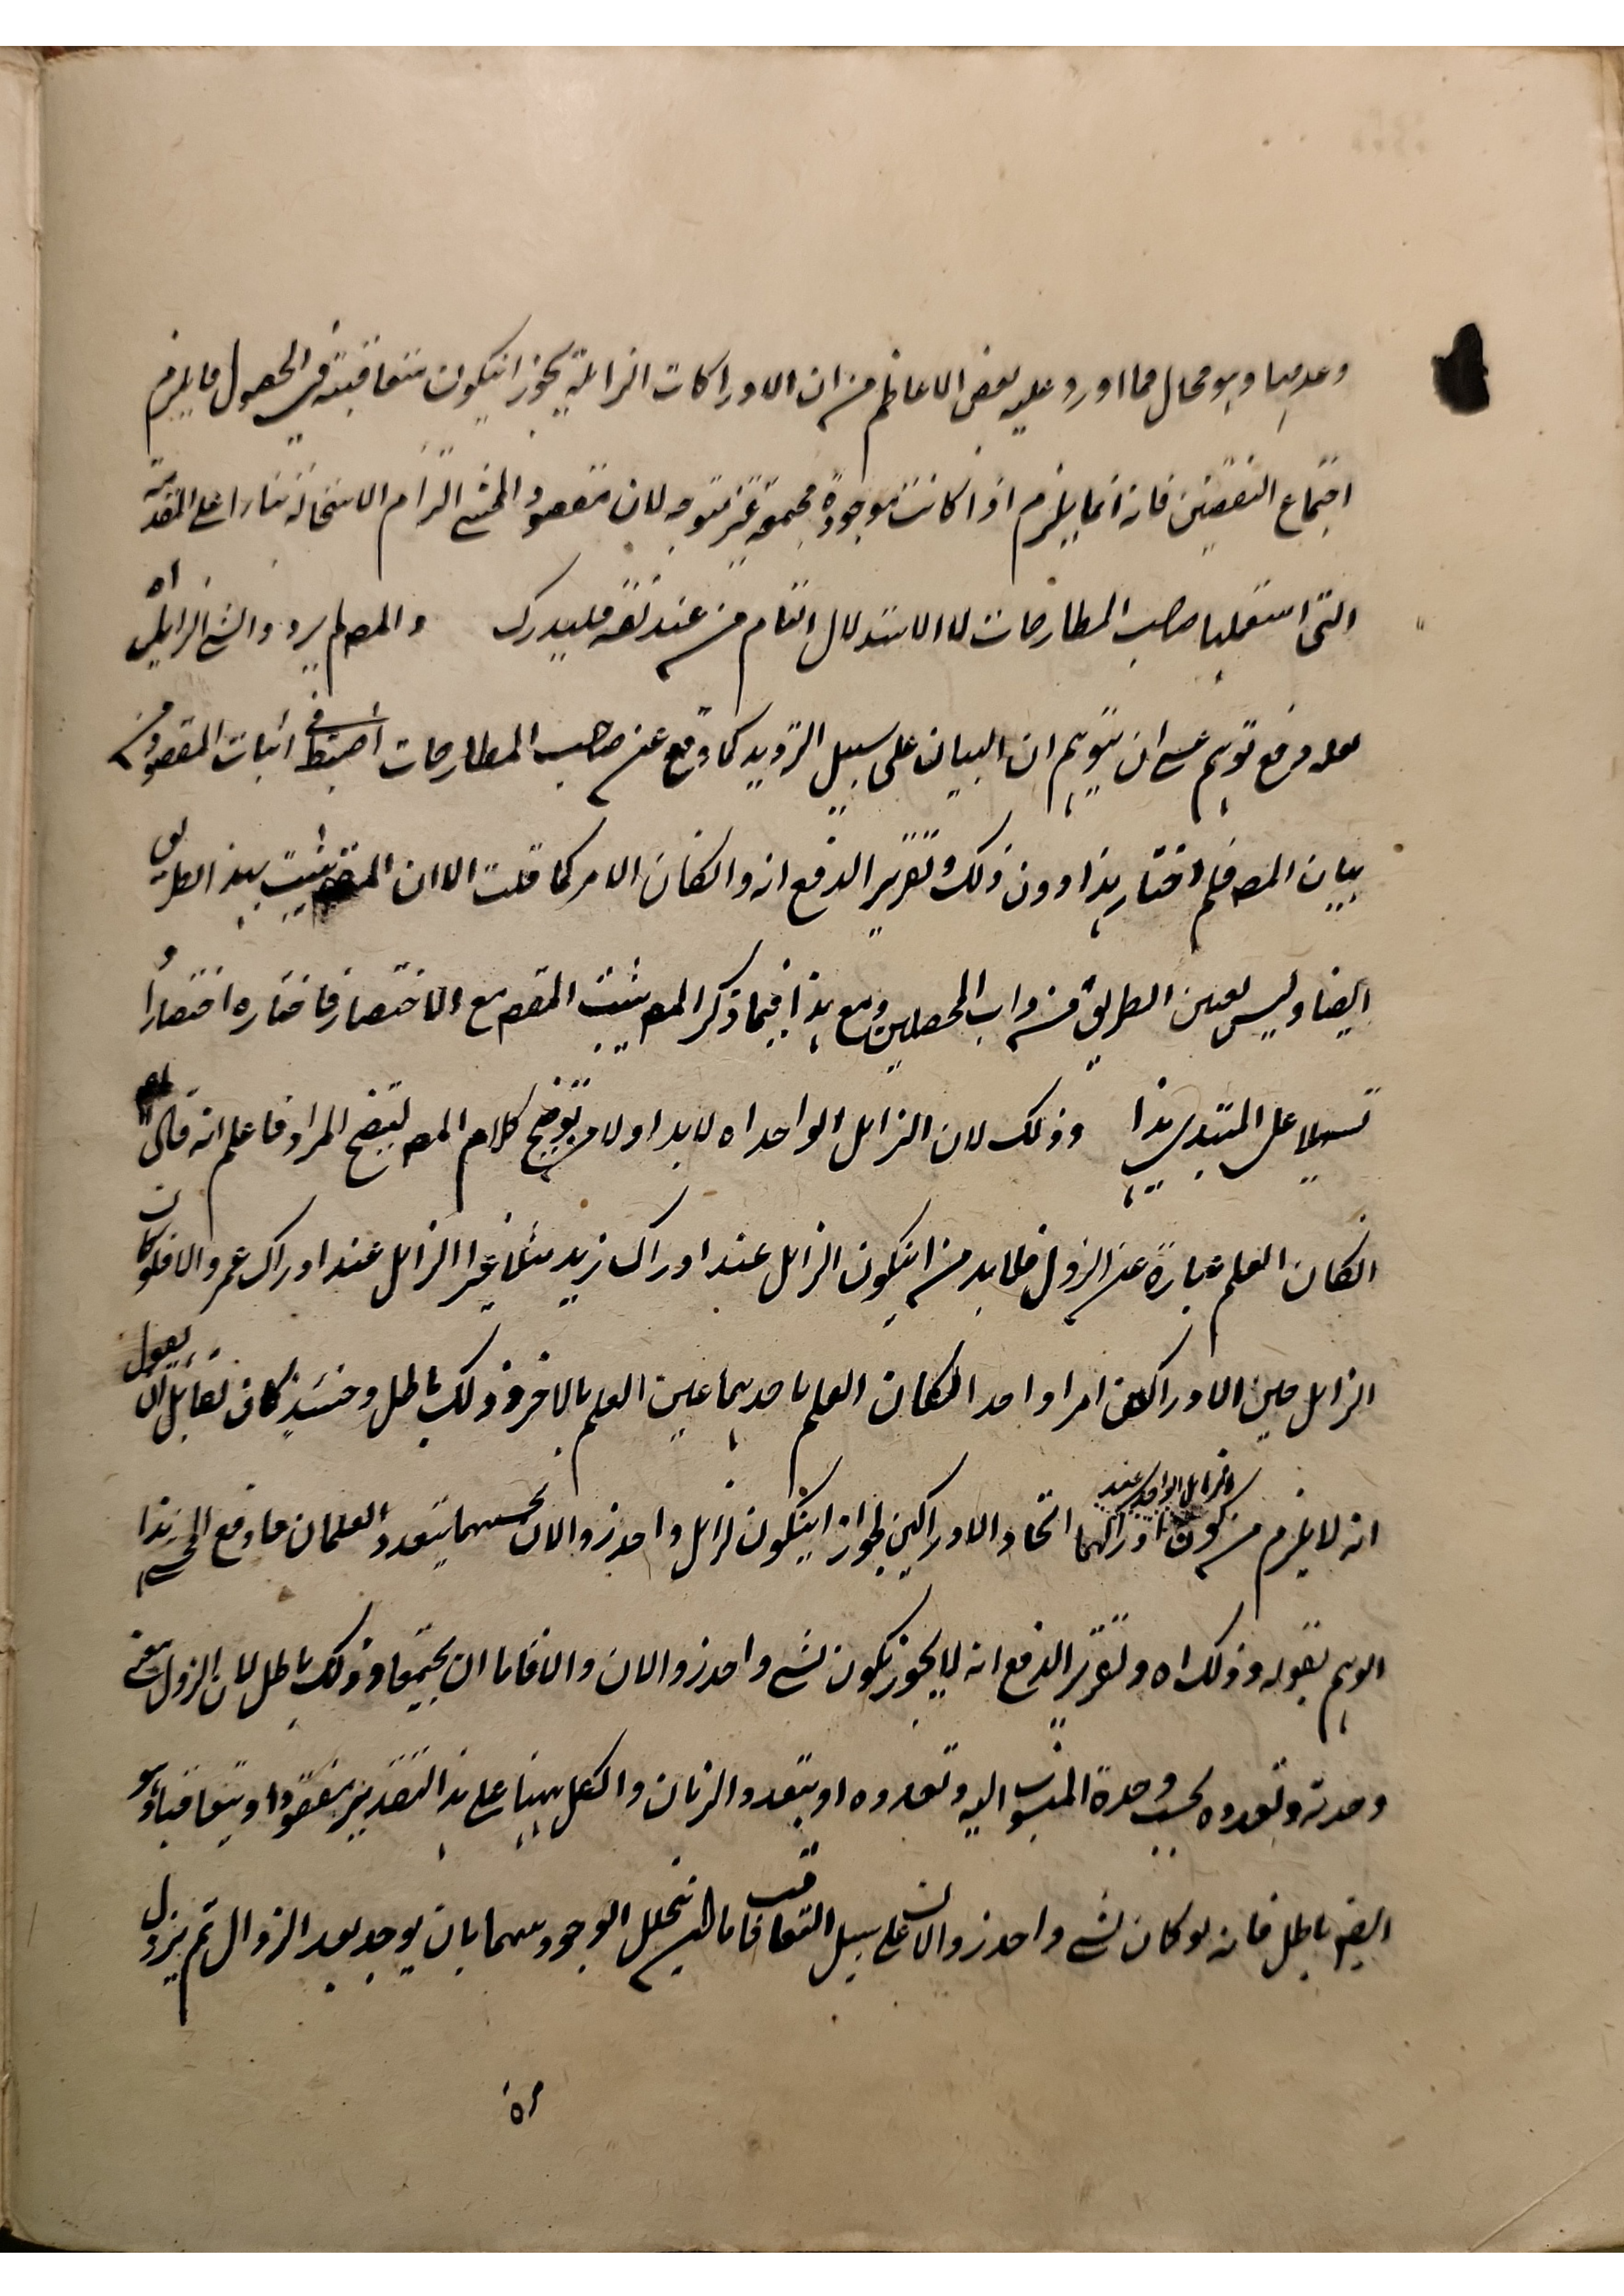 وعدمها وهو محال فما اورد عليه بعض الاعاظم من ان الادراكات الزائلة يجوز ان يكون متعاقبة في الحصول فا يلزم
اجتماع النقيضين فانه انما يلزم اذا كانت موجودة مجتمعة غير متوجه لان مقصود المحشي الزام الاستحالة بناءا على المقدمة
التي استعملها صاحب المطارحات لا الاستدلال التام من عند نفسه فليدرك والمصـ لم يردد والشيء الزايل اه
لعله دفع توهم عسى ان يتوهم ان البيان على سبيل الترديد كما وقع عن صاحب المطارحات اضبط في اثبات المقصود من
بيان المصـ فلم اختار هذا دون ذلك وتقرير الدفع انه وان كان الامر كما قلت الا ان المقصـ يثبت بهذا الطريق
ايضا وليس تعين الطريق من داب المحصلين ومع هذا فيما ذكر المصـ يثبت المقصـ مع الاختصار فاختاره اختصارا و
تسهيلا على المبتدي هذا وذلك لان الزايل الواحد اه لا بد اولا من توضيح كلام المصـ ليتضح المراد فاعلم انه قال
ان كان العلم عبارة عن الزول فلا بد من ان يكون الزايل عند ادراك زيد مثلا غير الزايل عند ادراك عمرو والا فلو كان
الزايل حين الادراكين امرا واحدا لكان العلم باحدهما عين العلم بالاخر وذلك باطل وحينئذ كان لقائل ان يقول
انه لا يلزم من كون الزايل الواحد عند ادراكهما اتحاد الادراكين لجواز ان يكون لزايل واحد زوالان بحسبهما يتعدد العلمان فا دفع المحشي هذا
الوهم بقوله وذلك اه وتقرير الدفع انه لا يجوز يكون لشيء واحد زوالان والا فاما ان يجتمعا وذلك باطل لان الزول معنى
وحدته وتعدده بحسب وحدة المنسوب اليه وتعدده او بتعدد الزمان والكل ههنا على هذا التقدير مفقود او يتعاقبا وهو
ايضـ باطل فانه لو كان لشيء واحد زوالان على سبيل التعاقب فاما ان يتخلل الوجود بينهما بان يوجد بعد الزوال ثم يزول